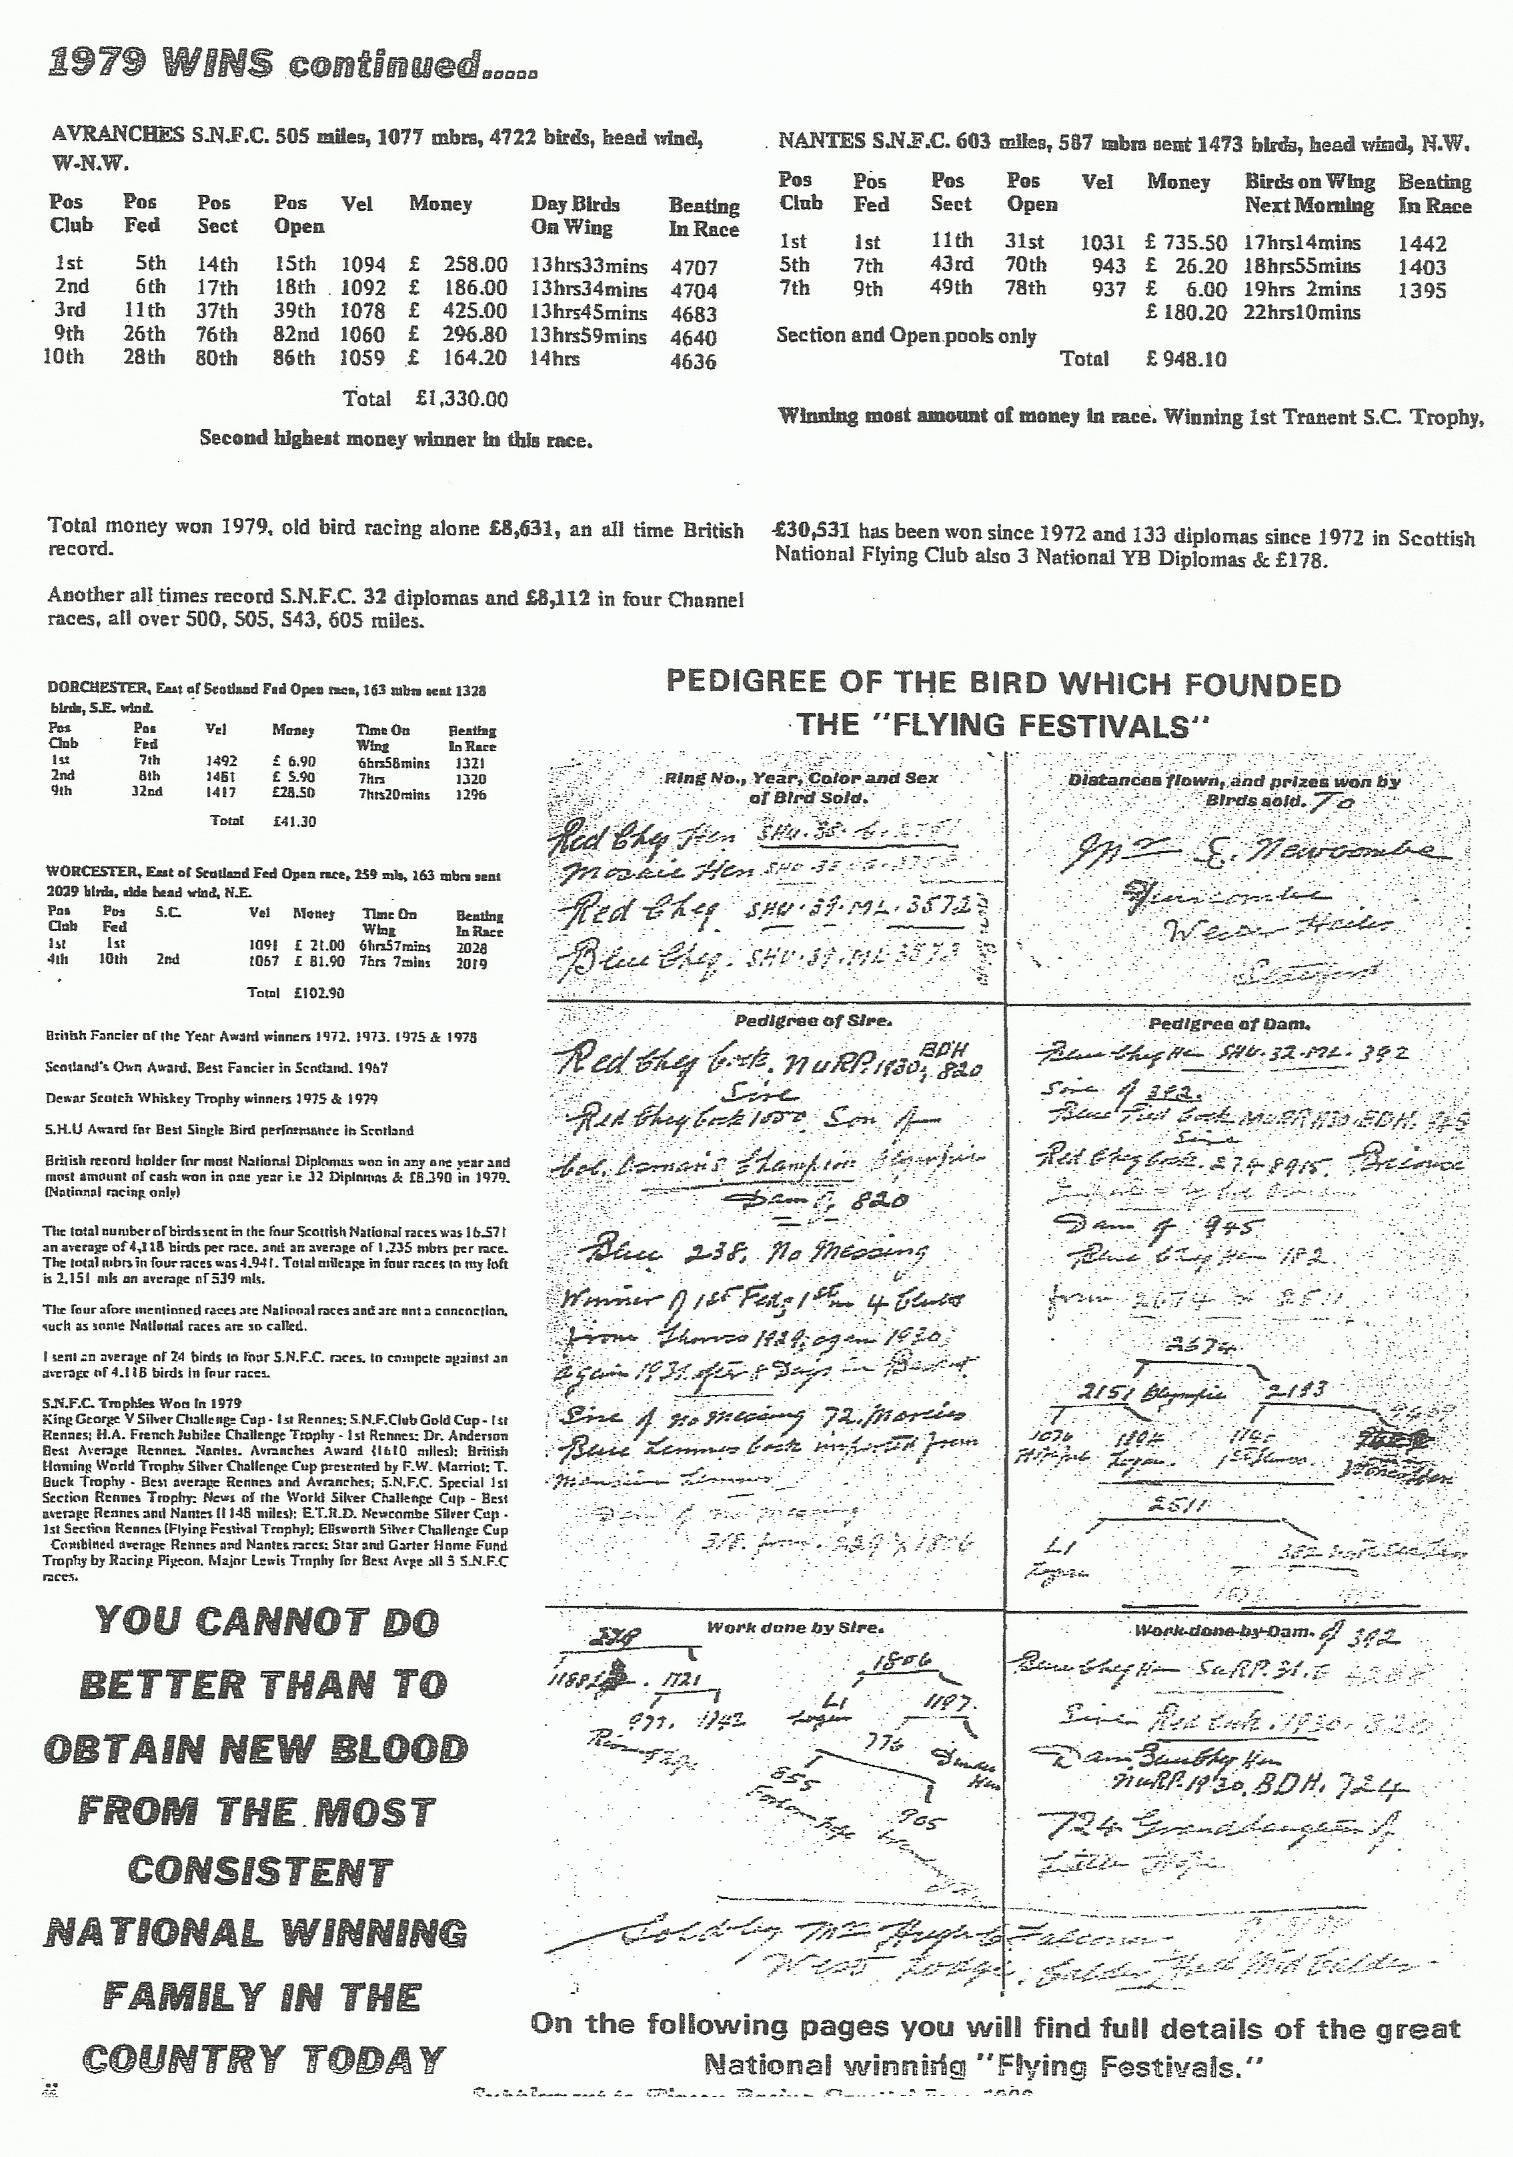 1979 WINS continued.....
AVRANCHES S.N.F.C. 505 miles, 1077 mbrs, 4722 birds, head wind,
W-N.W.
Pos Pos Pos Pos Vel Money Day Birds Beating
Club Fed Sect Open On Wing In Race
1st 5th 14th 15th 1094 £ 258.00 13hrs33mins 4707
2nd 6th 17th 18th 1092 £ 186.00 13hrs34mins 4704
3rd 11th 37th 39th 1078 £ 425.00 13hrs45mins 4683
9th 26th 76th 82nd 1060 £ 296.80 13hrs59mins 4640
10th 28th 80th 86th 1059 £ 164.20 14hrs 4636
Total £1,330.00
Second highest money winner in this race.
NANTES S.N.F.C. 603 miles, 587 mbrs sent 1473 birds, head wind, N.W.
Pos Pos Pos Pos Vel Money Birds on Wing Beating
Club Fed Sect Open Next Morning In Race
1st 1st 11th 31st 1031 £ 735.50 17hrs14mins 1442
5th 7th 43rd 70th 943 £ 26.20 18hrs55mins 1403
7th 9th 49th 78th 937 £ 6.00 19hrs 2mins 1395
£ 180.20 22hrs10mins
Section and Open pools only
Total £ 948.10
Winning most amount of money in race. Winning 1st Tranent S.C. Trophy,
Total money won 1979, old bird racing alone £8,631, an all time British
record.
Another all times record S.N.F.C. 32 diplomas and £8,112 in four Channel
races, all over 500, 505, 543, 605 miles.
£30,531 has been won since 1972 and 133 diplomas since 1972 in Scottish
National Flying Club also 3 National YB Diplomas & £178.
DORCHESTER, East of Scotland Fed Open race, 163 mbrs sent 1328
birds, S.E. wind.
Pos Pos Vel Money Time On Beating
Club Fed Wing In Race
1st 7th 1492 £ 6.90 6hrs58mins 1321
2nd 8th 1461 £ 5.90 7hrs 1320
9th 32nd 1417 £28.50 7hrs20mins 1296
Total £41.30
WORCESTER, East of Scotland Fed Open race, 259 mls, 163 mbrs sent
2029 birds, side head wind, N.E.
Pos Pos S.C. Vel Money Time On Beating
Club Fed Wing In Race
1st 1st 1091 £ 21.00 6hrs57mins 2028
4th 10th 2nd 1067 £ 81.90 7hrs 7mins 2019
Total £102.90
British Fancier of the Year Award winners 1972, 1973, 1975 & 1978
Scotland's Own Award, Best Fancier in Scotland, 1967
Dewar Scotch Whiskey Trophy winners 1975 & 1979
S.H.U Award for Best Single Bird performance in Scotland
British record holder for most National Diplomas won in any one year and
most amount of cash won in one year i.e 32 Diplomas & £8,390 in 1979.
(National racing only)
The total number of birds sent in the four Scottish National races was 16,571
an average of 4,118 birds per race, and an average of 1,235 mbrs per race.
The total mbrs in four races was 4,941. Total mileage in four races to my loft
is 2,151 mls an average of 539 mls.
The four afore mentioned races are National races and are not a concoction,
such as some National races are so called.
I sent an average of 24 birds to four S.N.F.C. races, to compete against an
average of 4,118 birds in four races.
S.N.F.C. Trophies Won in 1979
King George V Silver Challenge Cup - 1st Rennes; S.N.F.Club Gold Cup - 1st
Rennes; H.A. French Jubilee Challenge Trophy - 1st Rennes; Dr. Anderson
Best Average Rennes, Nantes, Avranches Award (1610 miles); British
Homing World Trophy Silver Challenge Cup presented by F.W. Marriot; T.
Buck Trophy - Best average Rennes and Avranches; S.N.F.C. Special 1st
Section Rennes Trophy; News of the World Silver Challenge Cup - Best
average Rennes and Nantes (1148 miles); E.T.R.D. Newcombe Silver Cup -
1st Section Rennes (Flying Festival Trophy); Ellsworth Silver Challenge Cup
Combined average Rennes and Nantes races; Star and Garter Home Fund
Trophy by Racing Pigeon, Major Lewis Trophy for Best Avge all 3 S.N.F.C
races.
YOU CANNOT DO
BETTER THAN TO
OBTAIN NEW BLOOD
FROM THE MOST
CONSISTENT
NATIONAL WINNING
FAMILY IN THE
COUNTRY TODAY
PEDIGREE OF THE BIRD WHICH FOUNDED
THE "FLYING FESTIVALS"
Ring No., Year, Color and Sex
of Bird Sold.
Red Cheq Hen SHU.38.
Mosaic Hen
Red Cheq SHU.39.ML.3572
Blue Cheq. SHU.39.ML.3573
Distances flown, and prizes won by
Birds sold. To
Mr E. Newcombe
Pedigree of Sire.
Red Cheq Cock. NURP.1930, BDH 820
Sire
Red Cheq Cock 1000 Son of
Col. Osman's Champion
Dam of 820
Blue 238, No Messing
Winner of 1st Fed; 1st in 4 Clubs
from Thurso 1929; again 1930
again 1931 after 8 Days in Basket.
Sire of No Messing 72, Morcies
Blue Cock imported from
Dam of No Messing
318 from 229 & 1806
Pedigree of Dam.
Blue Cheq Hen SHU.32.ML.392
Sire of 392.
Blue Pied Cock NURP.1930.BDH. 945
Sire
Red Cheq Cock. 2748915.
Dam of 945
Blue Cheq Hen 182
from 2674 & 2511
2674
2151 Olympic 2183
1076
Logan
2511
L1
Logan
Work done by Sire.
1721
977. 1742
1806
L1
Logan
1197.
776
855
905
Work done by Dam. of 392
Blue Cheq Hen SURP.31.
Sire Red Cock. 1930. 820
Dam. Blue Cheq Hen
NURP.1930.BDH.724
724 Granddaughter of
Sold by Mr Hugh
West Lodge,
On the following pages you will find full details of the great
National winning "Flying Festivals."